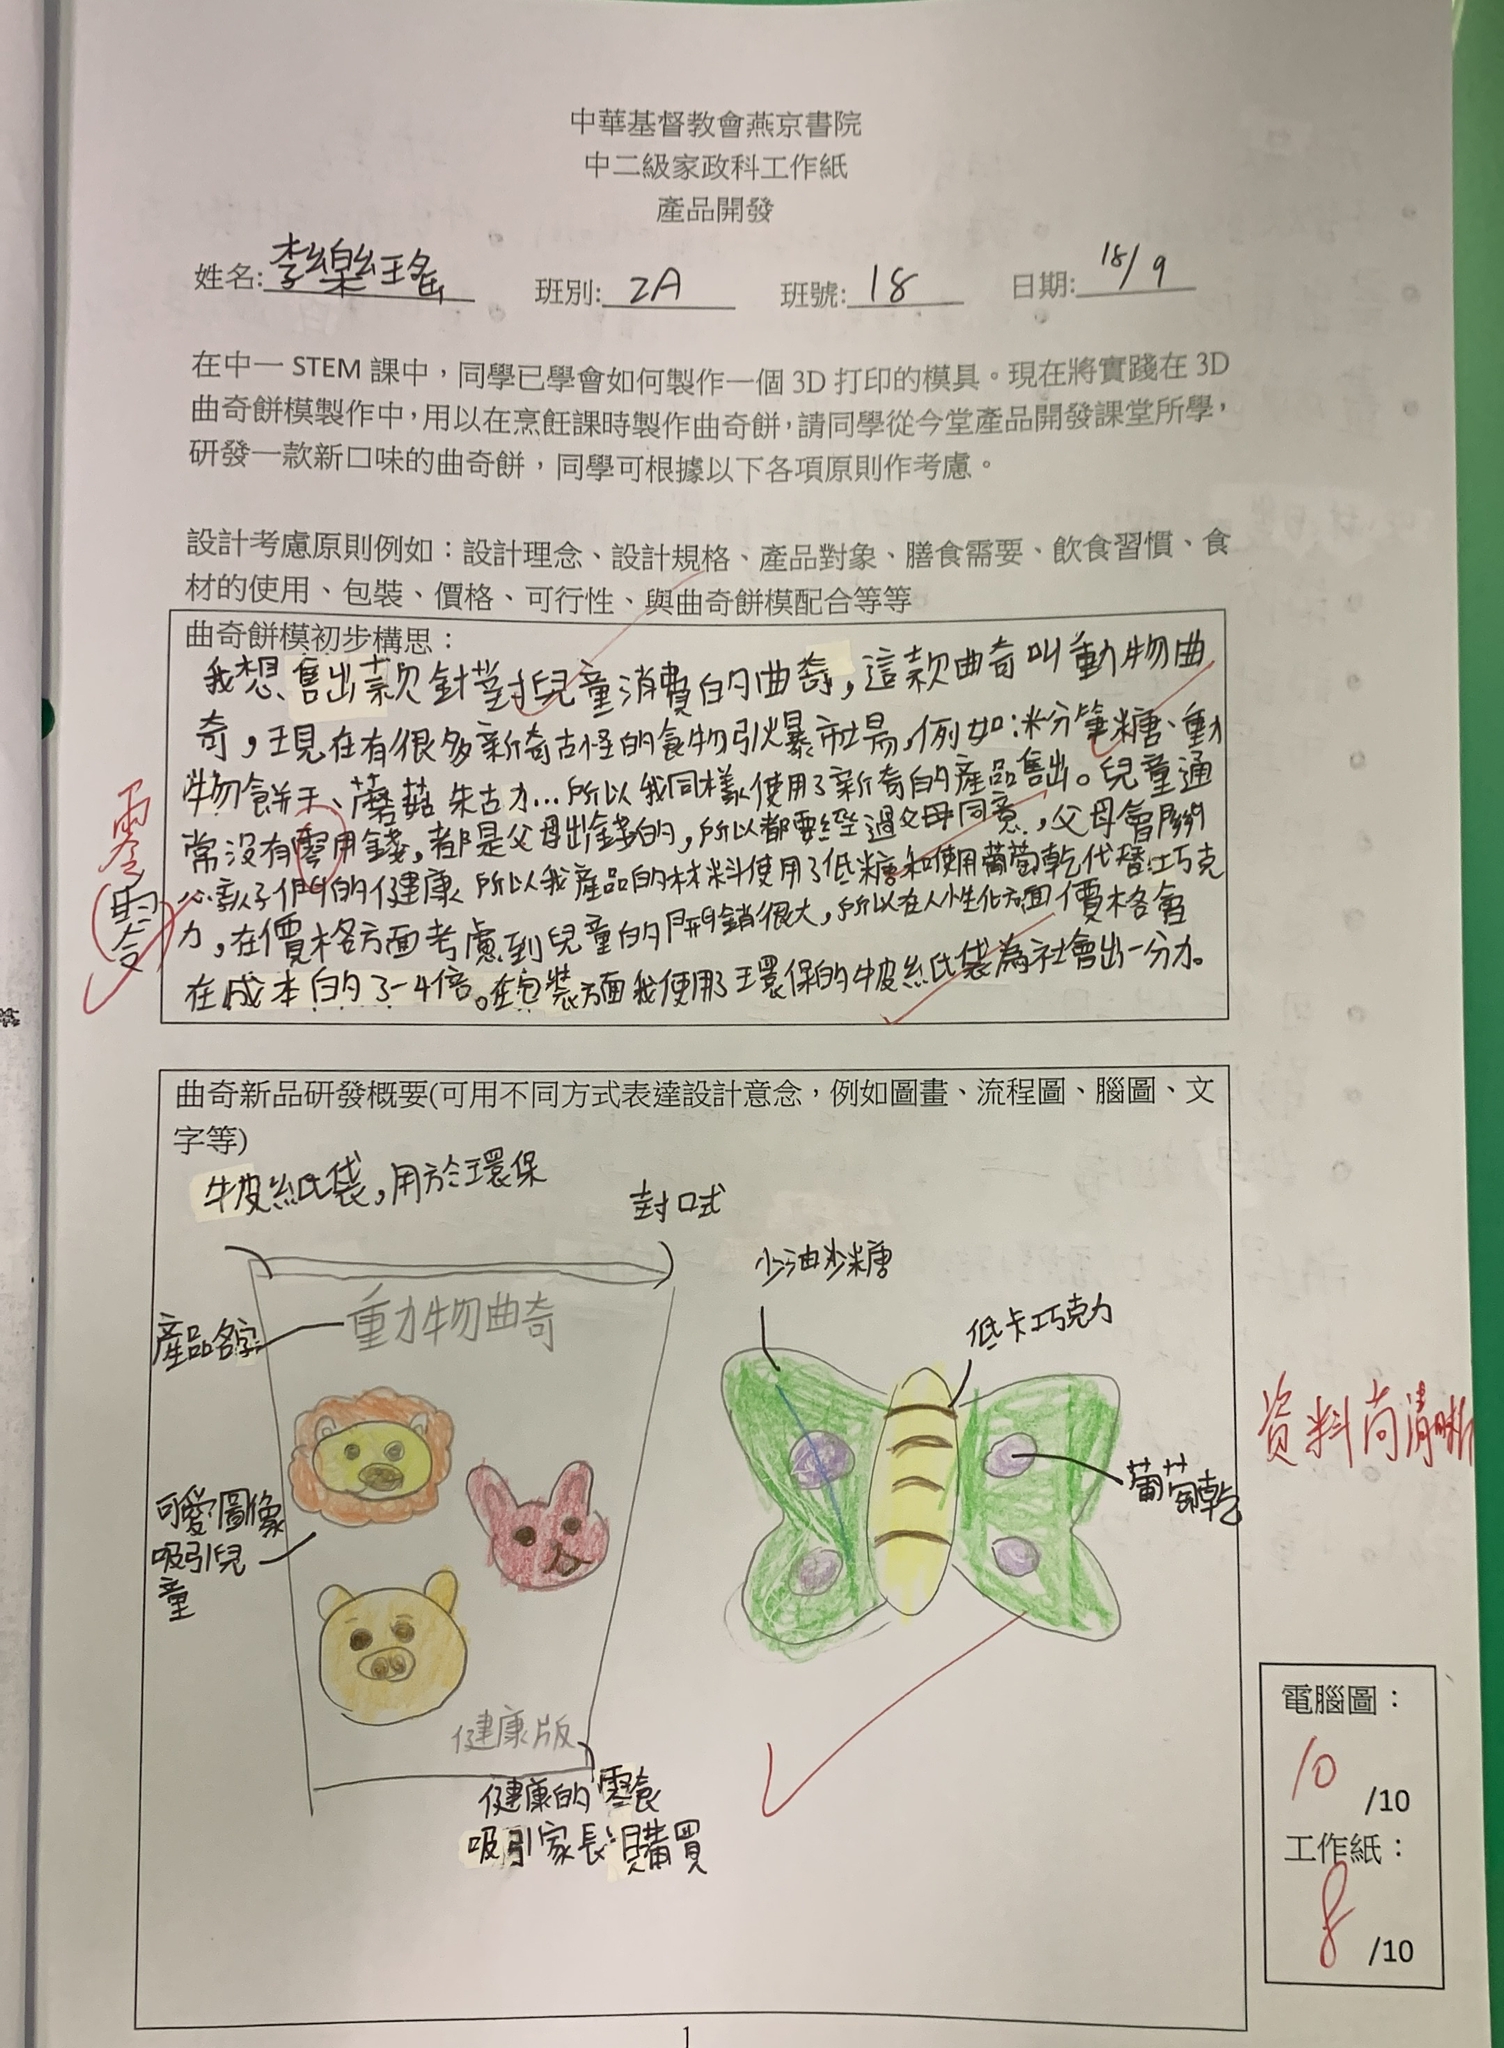 中華基督教會燕京書院
中二級家政科工作紙
產品開發
姓名:李樂瑤 班別:2A 班號:18 日期:18/9
在中一 STEM 課中，同學已學會如何製作一個 3D 打印的模具。現在將實踐在 3D
曲奇餅模製作中，用以在烹飪課時製作曲奇餅，請同學從今堂產品開發課堂所學，
研發一款新口味的曲奇餅，同學可根據以下各項原則作考慮。
設計考慮原則例如：設計理念、設計規格、產品對象、膳食需要、飲食習慣、食
材的使用、包裝、價格、可行性、與曲奇餅模配合等等
曲奇餅模初步構思：
我想售出一款針對兒童消費的曲奇，這款曲奇叫動物曲
奇，現在有很多新奇古怪的食物引爆市場，例如：粉筆糖、動
物餅干、蘑菇朱古力...所以我同樣使用了新奇的產品售出。兒童通
常沒有零用錢，都是父母出錢的，所以都要經過父母同意，父母會關
心孩子們的健康 所以我產品的材料使用了低糖和使用葡萄乾代替巧克
力，在價格方面考慮到兒童的開銷很大，所以在人性化方面價格會
在成本的3-4倍。在包裝方面我使用了環保的牛皮紙袋為社會出一分力。
零
(零)
曲奇新品研發概要(可用不同方式表達設計意念，例如圖畫、流程圖、腦圖、文
字等)
牛皮紙袋，用於環保
封口式
少油少糖
產品名字
動物曲奇
低卡巧克力
葡萄乾
資料尚清晰
可愛圖像
吸引兒
童
健康版
健康的零食
吸引家長購買
電腦圖：
10 /10
工作紙：
8 /10
1